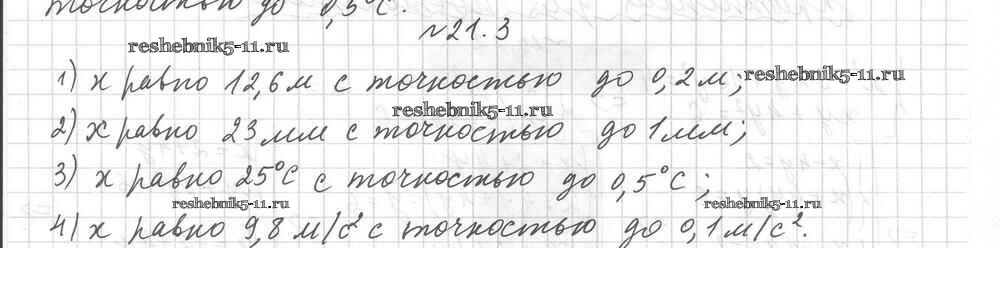 точностью до 0,5°С.
№21.3
reshebnik5-11.ru
1) х равно 12,6 м с точностью до 0,2 м; reshebnik5-11.ru
reshebnik5-11.ru
2) х равно 23 мм с точностью до 1 мм;
3) х равно 25°С с точностью до 0,5°С;
reshebnik5-11.ru reshebnik5-11.ru
4) х равно 9,8 м/с² с точностью до 0,1 м/с².